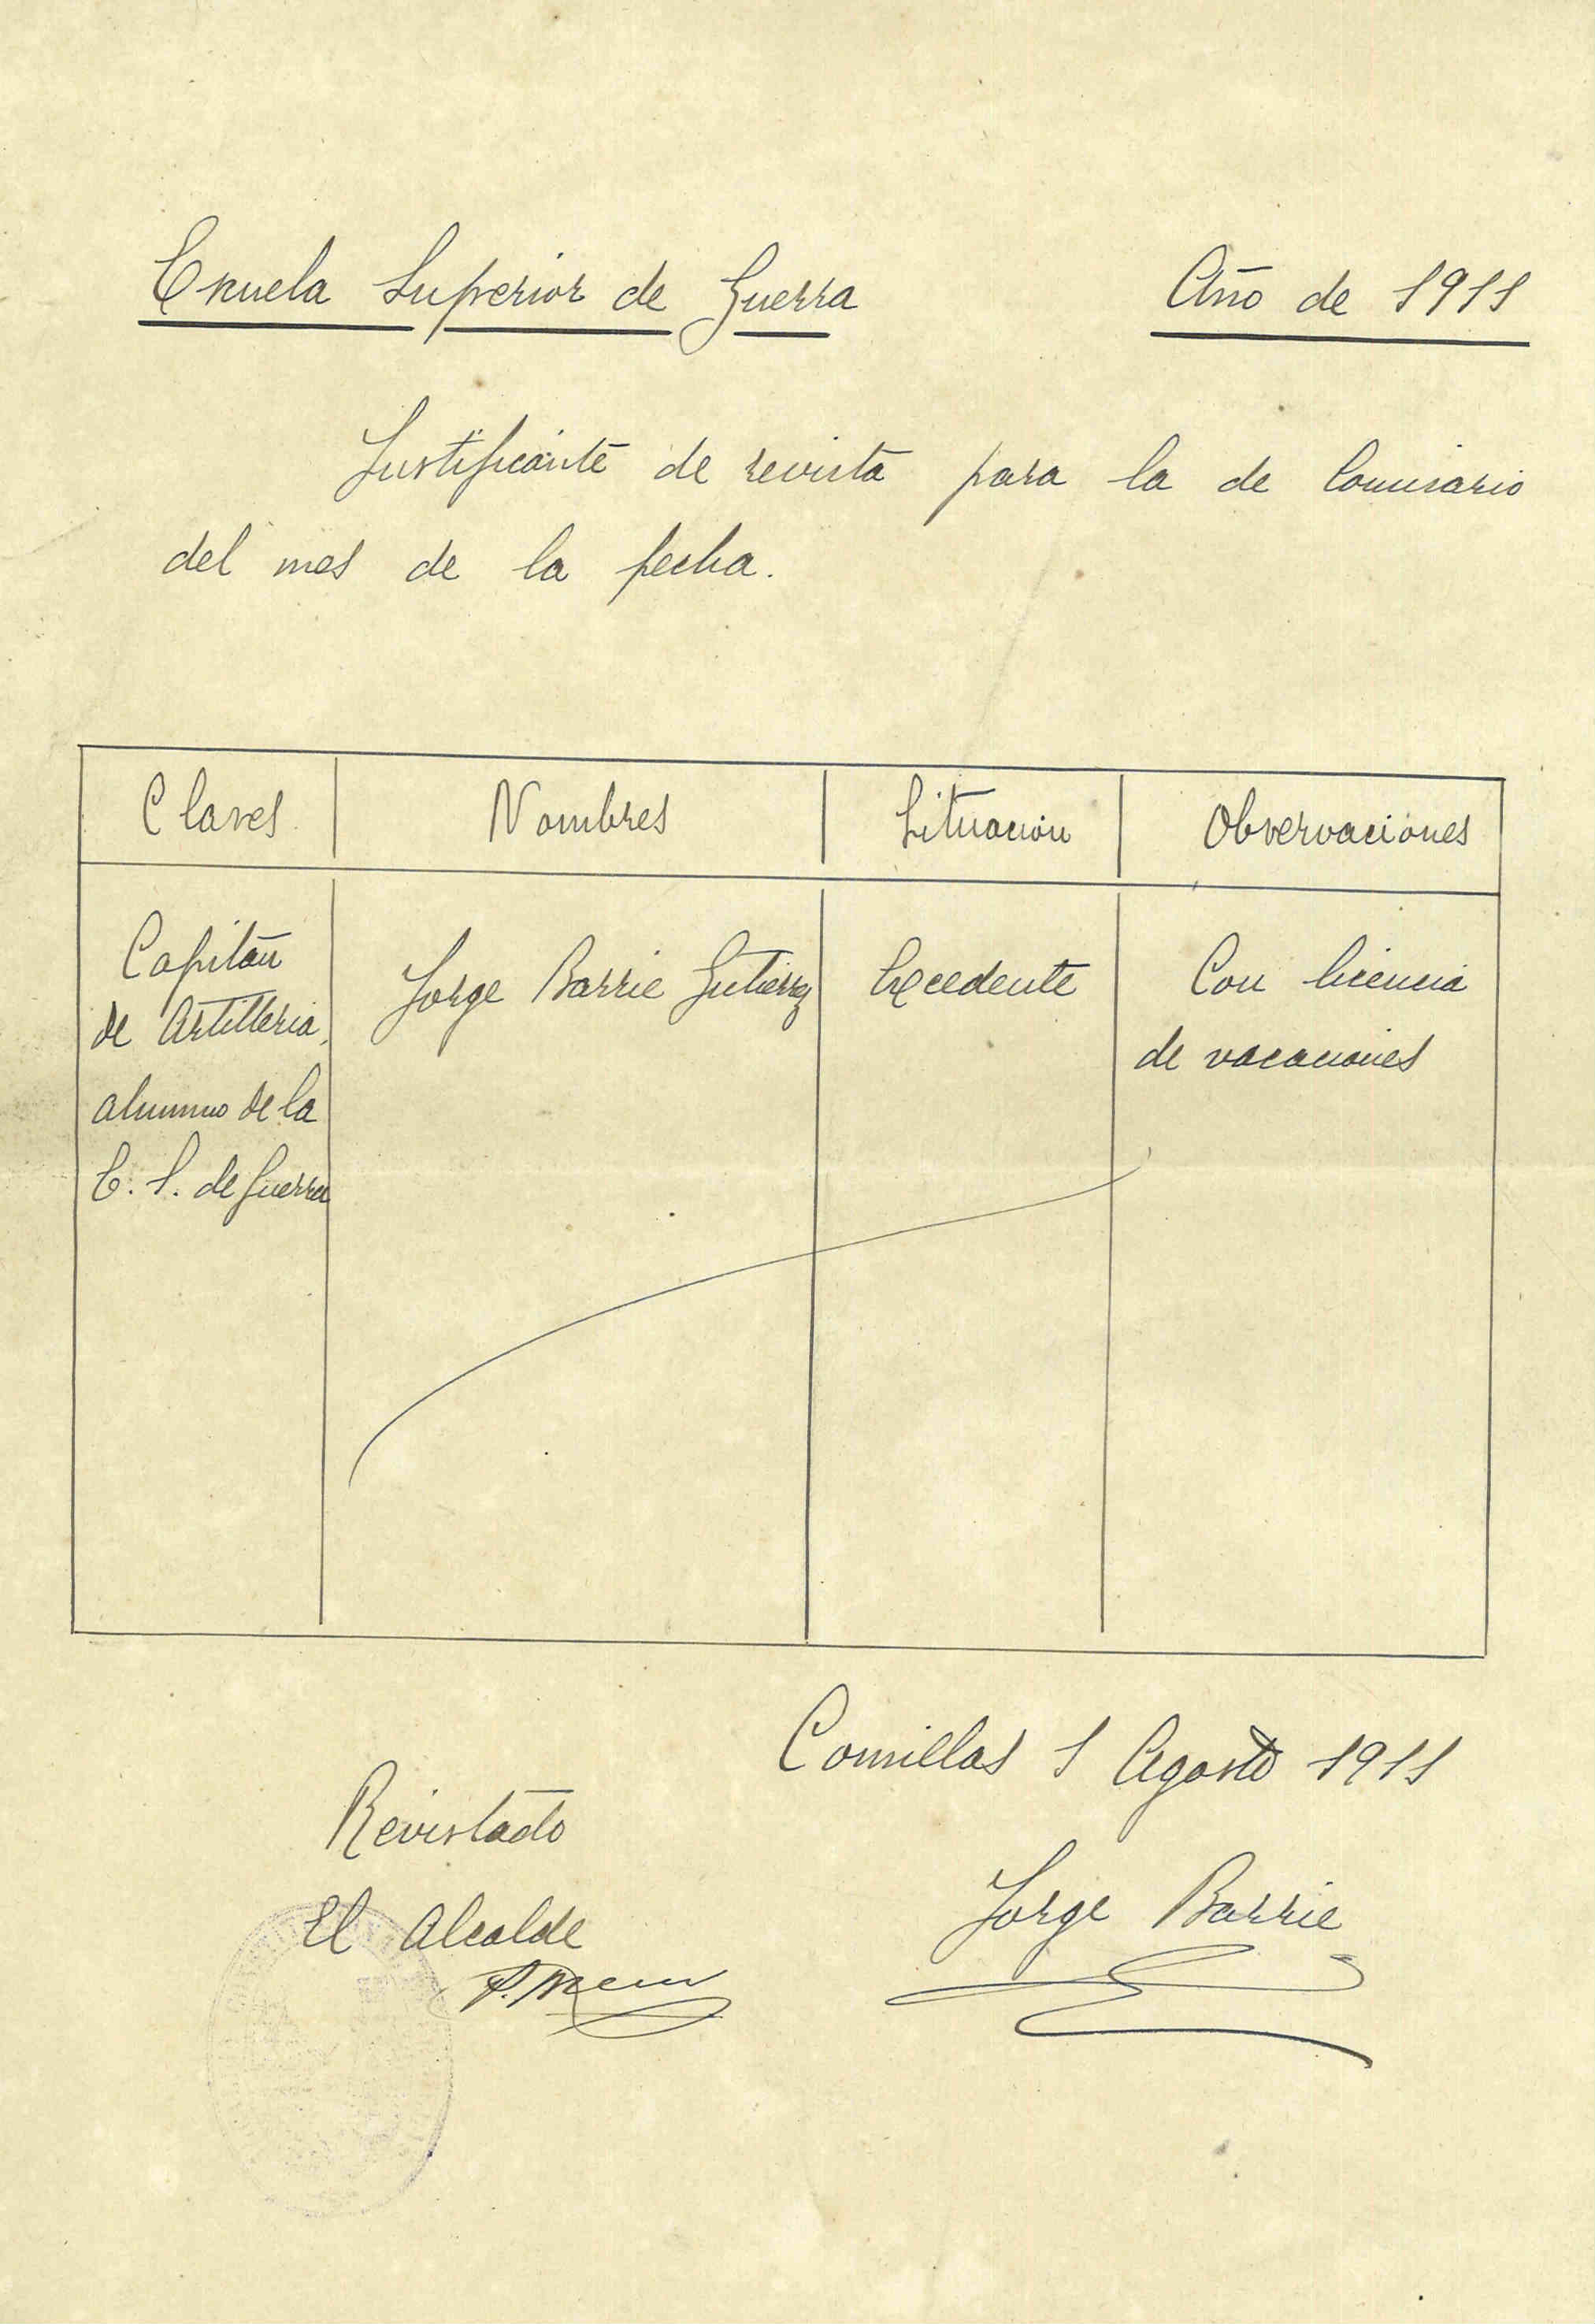 Escuela Superior de Guerra Año de 1911
Justificante de revista para la de Comisario
del mes de la fecha.
Clases Nombres Situación Observaciones
Capitán Jorge Barrie Gutierrez Excedente Con licencia
de Artilleria, de vacaciones
alumno de la
E. S. de Guerra
Comillas 1 Agosto 1911
Revistado
El Alcalde Jorge Barrie